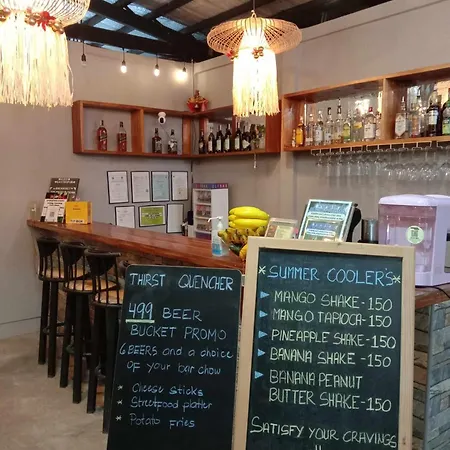 THIRST QUENCHER
499 BEER
BUCKET PROMO
6 BEERS and a choice
of your bar chow
* Cheese sticks
* Streetfood platter
* Potato fries
*SUMMER COOLER'S*
MANGO SHAKE-150
MANGO TAPIOCA-150
PINEAPPLE SHAKE-150
BANANA SHAKE -150
BANANA PEANUT
BUTTER SHAKE-150
SATISFY YOUR CRAVINGS